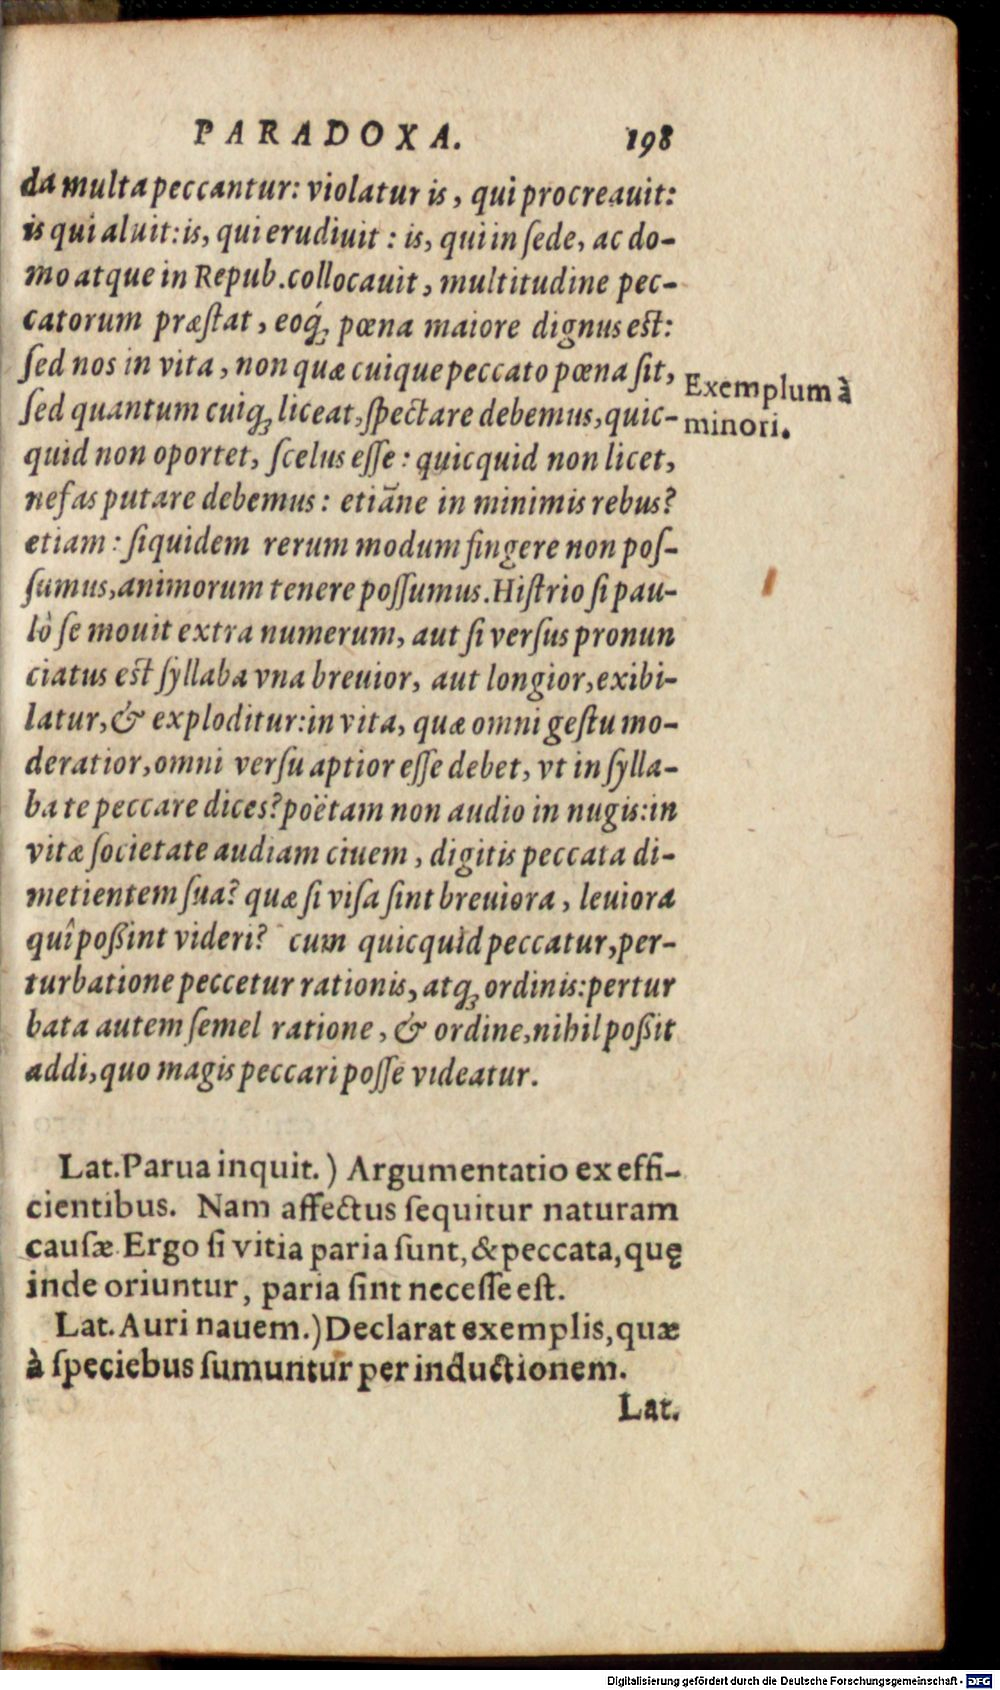 PARADOXA. 198
da multa peccantur: violatur is, qui procreauit:
is qui aluit: is, qui erudiuit: is, qui in ſede, ac do-
mo atque in Repub. collocauit, multitudine pec-
catorum præſtat, eoq́; pœna maiore dignus est:
ſed nos in vita, non quæ cuique peccato pœna ſit,
ſed quantum cuiq; liceat, ſpectare debemus, quic-
quid non oportet, ſcelus eſſe: quicquid non licet,
nefas putare debemus: etiãne in minimis rebus?
etiam: ſiquidem rerum modum fingere non poſ-
ſumus, animorum tenere poſſumus. Hiſtrio ſi pau-
lò ſe mouit extra numerum, aut ſi verſus pronun
ciatus est ſyllaba vna breuior, aut longior, exibi-
latur, & exploditur: in vita, quæ omni geſtu mo-
deratior, omni verſu aptior eſſe debet, vt in ſylla-
ba te peccare dices? poëtam non audio in nugis: in
vitæ ſocietate audiam ciuem, digitis peccata di-
metientem ſua? quæ ſi viſa ſint breuiora, leuiora
quî poßint videri? cum quicquid peccatur, per-
turbatione peccetur rationis, atq; ordinis: pertur
bata autem ſemel ratione, & ordine, nihil poßit
addi, quo magis peccari poſſe videatur.
Exemplum à
minori.
Lat. Parua inquit.) Argumentatio ex effi-
cientibus. Nam affectus ſequitur naturam
cauſæ. Ergo ſi vitia paria ſunt, & peccata, quę
inde oriuntur, paria ſint neceſſe eſt.
Lat. Auri nauem.) Declarat exemplis, quæ
à ſpeciebus ſumuntur per inductionem.
Lat.
Digitalisierung gefördert durch die Deutsche Forschungsgemeinschaft - DFG